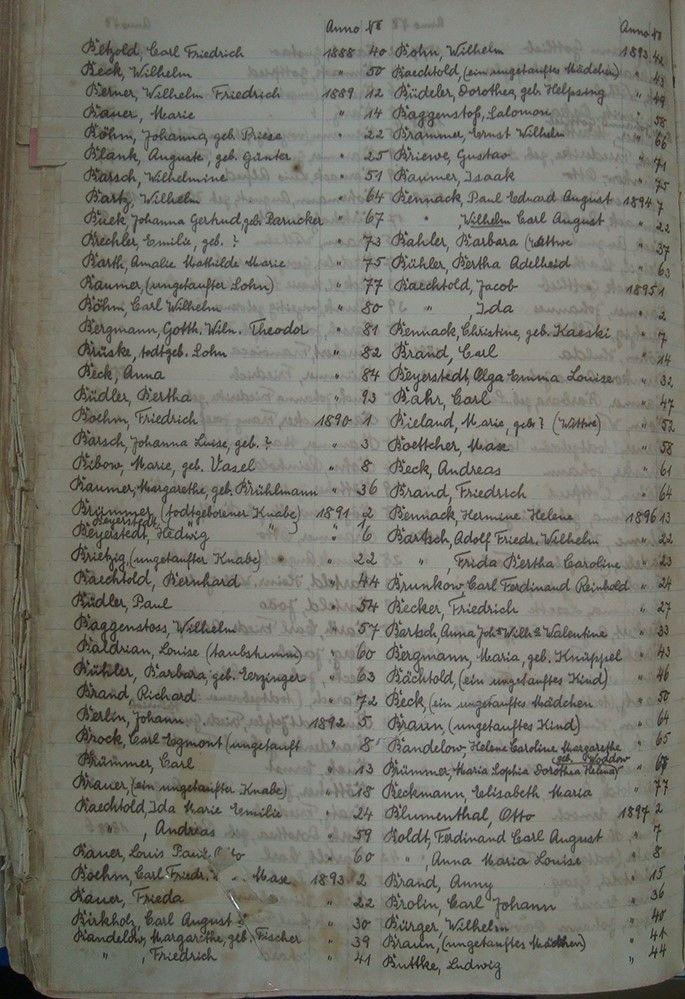 Anno №
Betzold, Carl Friedrich 1888 40
Beck, Wilhelm " 50
Berner, Wilhelm Friedrich 1889 12
Bauer, Marie " 14
Böhm, Johanna, geb. Priese " 22
Blank, Auguste, geb. Günter " 25
Barsch, Wilhelmine " 51
Bartz, Wilhelm " 64
Buek, Johanna Gertrud, geb. Parucker " 67
Brechler, Emilie, geb. ? " 73
Barth, Amalie Mathilde Marie " 75
Baumer, (ungetaufter Sohn) " 77
Böhm, Carl Wilhelm " 80
Bergmann, Gotth. Wilh. Theodor " 81
Brüske, todtgeb. Sohn " 82
Beck, Anna " 84
Büdler, Bertha " 93
Boehm, Friedrich 1890 1
Barsch, Johanna Luise, geb. ? " 3
Bibow, Marie, geb. Vasel " 8
Baumer, Margarethe, geb. Brühlmann " 36
Brümmer, (todtgeborener Knabe) 1891 2
Beyerstedt, Hedwig " 6
Brietzig, (ungetaufter Knabe) " 22
Baechtold, Bernhard " 44
Büdler, Paul " 54
Baggenstoss, Wilhelm " 57
Baldrian, Louise (taubstumm) " 60
Bühler, Barbara, geb. Erzinger " 63
Brand, Richard " 72
Berlin, Johann 1892 5
Brock, Carl Egmont (ungetauft " 8
Brümmer, Carl " 13
Brauer, (ein ungetaufter Knabe) " 18
Baechtold, Ida Marie Emilie " 24
" , Andreas " 59
Bauer, Louis Paul " 60
Boehm, Carl Friedr. Max 1893 2
Bauer, Frieda " 22
Birkholz, Carl August " 30
Bandelow, Margarethe, geb. Fischer " 39
" , Friedrich " 41
Anno №
Bohn, Wilhelm 1893 42
Baechtold, (ein ungetauftes Mädchen) " 43
Büdeler, Dorothea, geb. Helpsing " 49
Baggenstoß, Salomon " 58
Brammer, Ernst Wilhelm " 66
Briewe, Gustav " 71
Baumer, Isaak " 75
Bennack, Paul Eduard August 1894 7
" , Wilhelm Carl August " 22
Bahler, Barbara (Wittwe " 37
Bühler, Bertha Adelheid " 63
Baechtold, Jacob 1895 1
" , Ida " 2
Bennack, Christine, geb. Kaeski " 7
Brand, Carl " 14
Beyerstedt, Olga Emma Louise " 32
Bahr, Carl " 47
Bieland, Marie, geb. ? (Wittwe) " 52
Boettcher, Max " 58
Beck, Andreas " 61
Brand, Friedrich " 64
Bennack, Hermine Helene 1896 13
Bartsch, Adolf Friedr. Wilhelm " 22
" , Frida Bertha Caroline " 23
Brunkow, Carl Ferdinand Reinhold " 24
Becker, Friedrich " 27
Bartsch, Anna Valentine " 33
Bergmann, Maria, geb. Knüppel " 43
Bächtold, (ein ungetauftes Kind) " 46
Beck, (ein ungetauftes Mädchen " 50
Braun, (ungetauftes Kind) " 64
Bandelow, Helene Caroline Margarethe " 65
geb. Woddow
Brümmer, Maria Sophia Dorothea Helena
Beckmann, Elisabeth Maria " 77
Blumenthal, Otto 1897 2
Boldt, Ferdinand Carl August " 7
" , Anna Maria Louise " 8
Brand, Anny " 15
Brolin, Carl Johann " 36
Bürger, Wilhelm " 40
Braun, (ungetauftes Mädchen) " 41
Buttke, Ludwig " 44